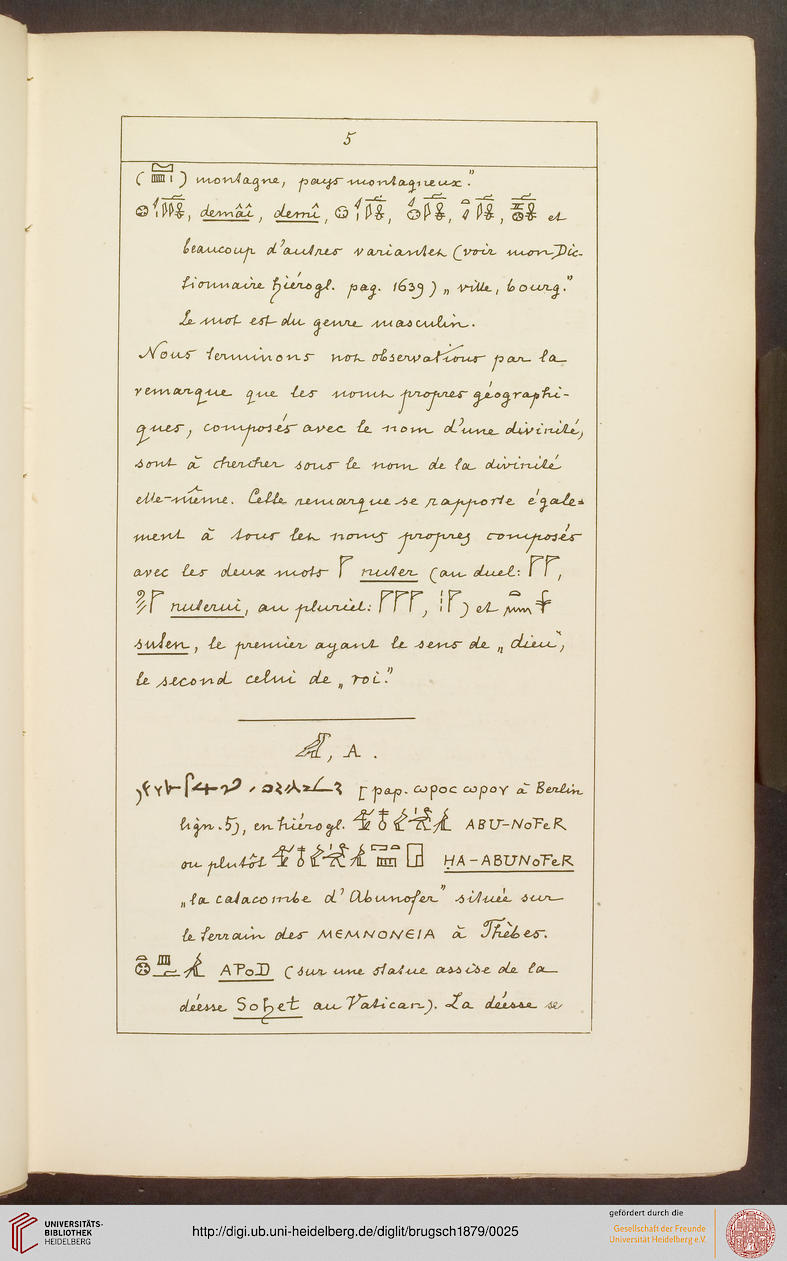 5
( ) montagne, pays montagneux."
, demâi, demî, , , , et
beaucoup d'autres variantes (voir mon Dic-
tionnaire hiérogl. pag. 1639) „ville, bourg."
Le mot est du genre masculin.
Nous terminons nos observations par la
remarque que les noms propres géographi-
ques, composés avec le nom d'une divinité,
sont à chercher sous le nom de la divinité
elle-même. Cette remarque se rapporte égale-
ment à tous les noms propres composés
avec les deux mots nuter (au duel: ,
nuterui, au pluriel: , ) et
suten, le premier ayant le sens de „dieu",
le second celui de „roi."
, A.
[pap. ωροc ωρον à Berlin
lign. 5), en hiérogl. ABU-NoFeR
ou plutôt ḤA-ABUNoFeR
„la catacombe d'Abunofer" située sur
le terrain des MEMNONEIA à Thèbes.
APoD (sur une statue assise de la
déesse Soḫet au Vatican). La déesse se
UNIVERSITÄTS-
BIBLIOTHEK
HEIDELBERG
http://digi.ub.uni-heidelberg.de/diglit/brugsch1879/0025
gefördert durch die
Gesellschaft der Freunde
Universität Heidelberg e.V.